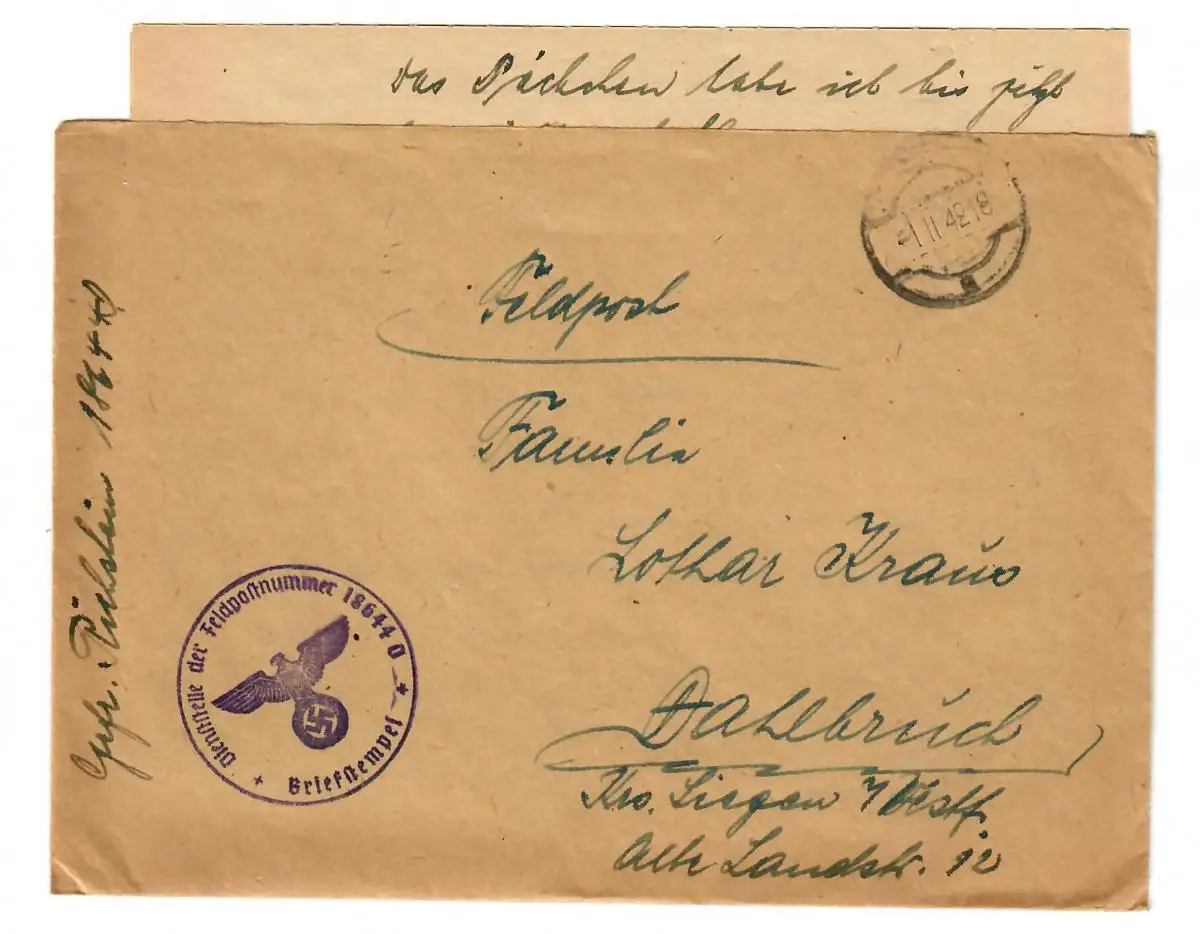 Das Päckchen habe ich bis jetzt
1.11.42.18
Feldpost
Familie
Lothar Kraus
Dahlbruch
Krs. Siegen / Westf.
Alte Landstr. 12
Gefr. 18644 D
Dienststelle der Feldpostnummer 18644 D
Briefstempel